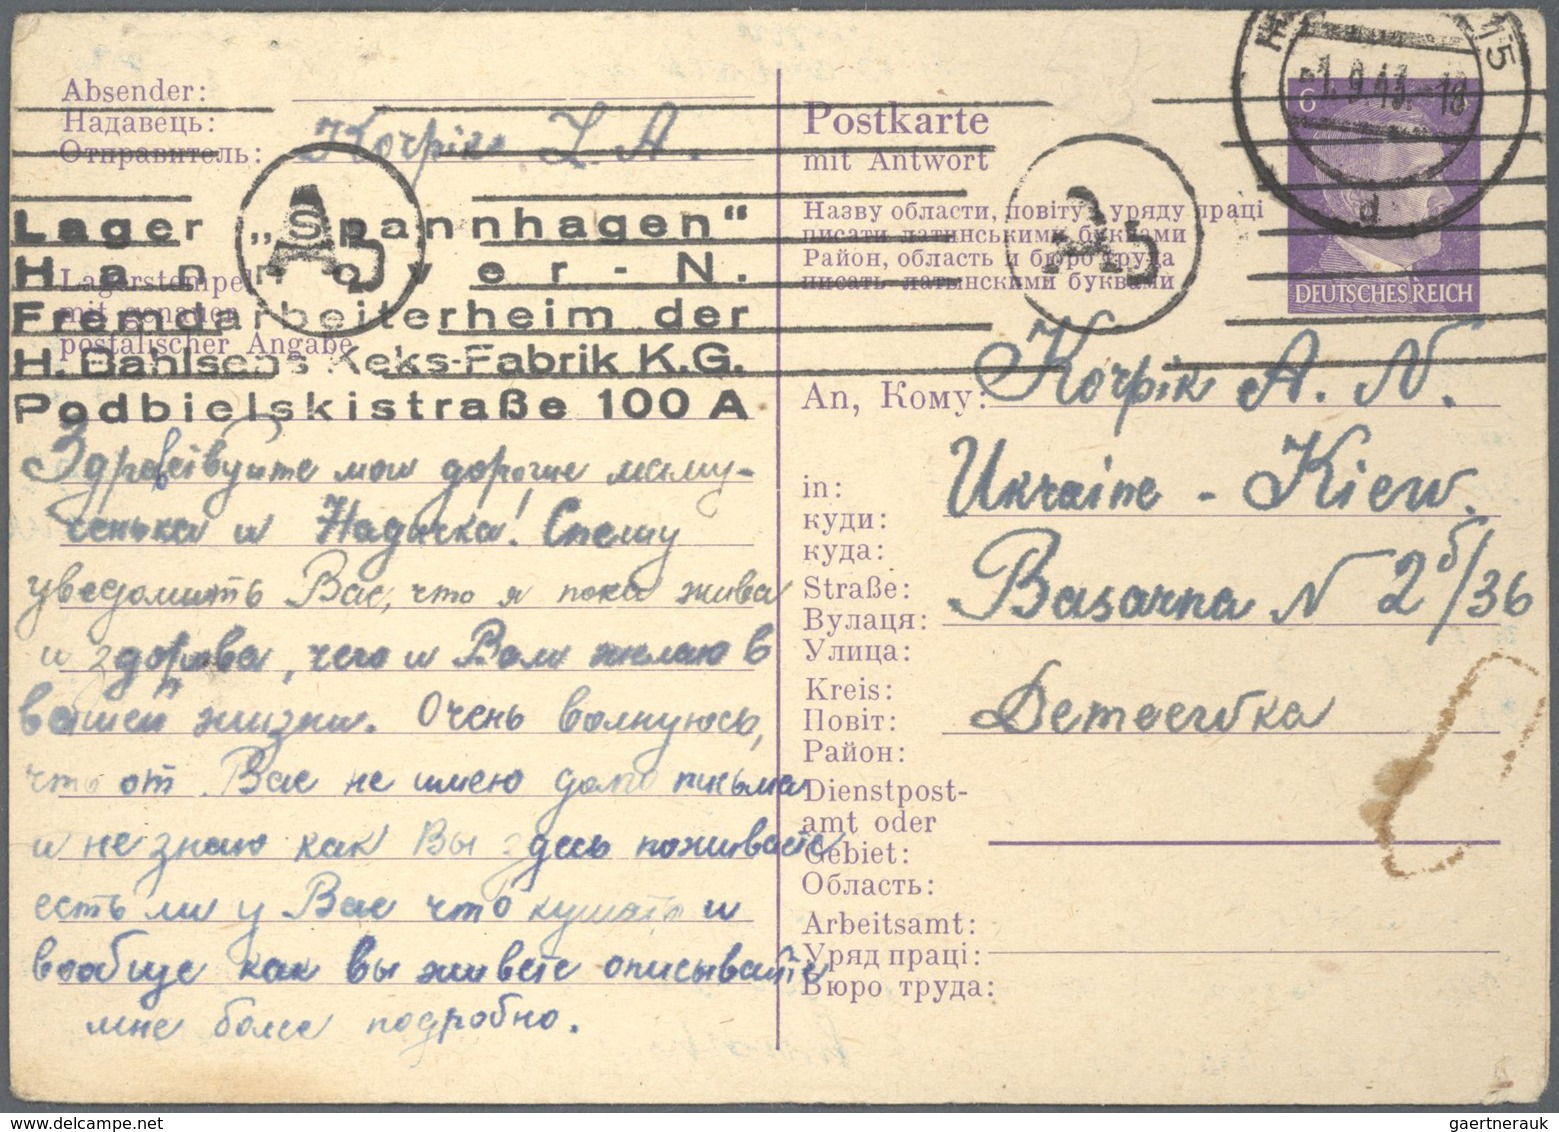 Absender:
Надавець:
Отправитель:
Корпік Z. A.
Lager „Spannhagen“
Hannover-N.
Fremdarbeiterheim der
H. Bahlsens Keks-Fabrik K.G.
Podbielskistraße 100 A
Lagerstempel
mit genauer
postalischer Angabe
Ab
Здравствуйте мои дорогие маму-
сенька и Надичка! Спешу
уведомить Вас, что я пока жива
и здорова, чего и Вам желаю в
вашей жизни. Очень волнуюсь,
что от Вас не имею долго письма
и не знаю как Вы здесь поживаете
есть ли у Вас что кушать и
вообще как вы живете описывайте
мне более подробно.
Postkarte
mit Antwort
Ab
15
-1.9.43.-18
d
6
DEUTSCHES REICH
Назву области, повіту и уряду праці
писати латинськими буквами
Район, область и бюро труда
писать латынскими буквами
An, Кому:
Korpik A. N.
in:
куди:
куда:
Ukraine - Kiew.
Straße:
Вулаця:
Улица:
Basarna N 2б/36
Kreis:
Повіт:
Район:
Demoewka
Dienstpost-
amt oder
Gebiet:
Область:
Arbeitsamt:
Уряд праці:
Бюро труда:
gaertnerauk